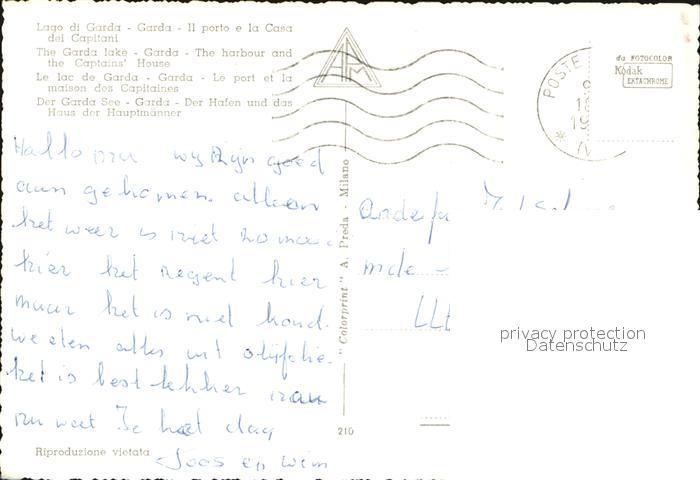 Lago di Garda - Garda - Il porto e la Casa
dei Capitani
The Garda lake - Garda - The harbour and
the Captains' House
Le lac de Garda - Garda - Le port et la
maison des Capitaines
Der Garda See - Garda - Der Hafen und das
Haus der Hauptmänner
POSTE
du FOTOCOLOR
Kodak
EKTACHROME
Hallo wij zijn goed
aan gekomen. alleen
het weer is niet zo mooi
hier het regent hier
maar het is niet koud.
we eten alles uit
het is best lekker
weet Je het dag
Joos en Wim
"Colorprint" A. Preda - Milano
210
Riproduzione vietata
privacy protection
Datenschutz